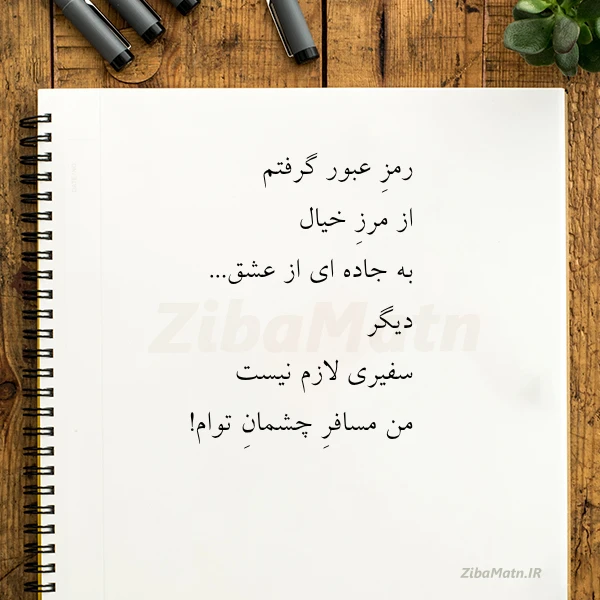 رمزِ عبور گرفتم
از مرزِ خیال
به جاده ای از عشق...
دیگر
سفیری لازم نیست
من مسافرِ چشمانِ توام!
ZibaMatn
ZibaMatn.IR